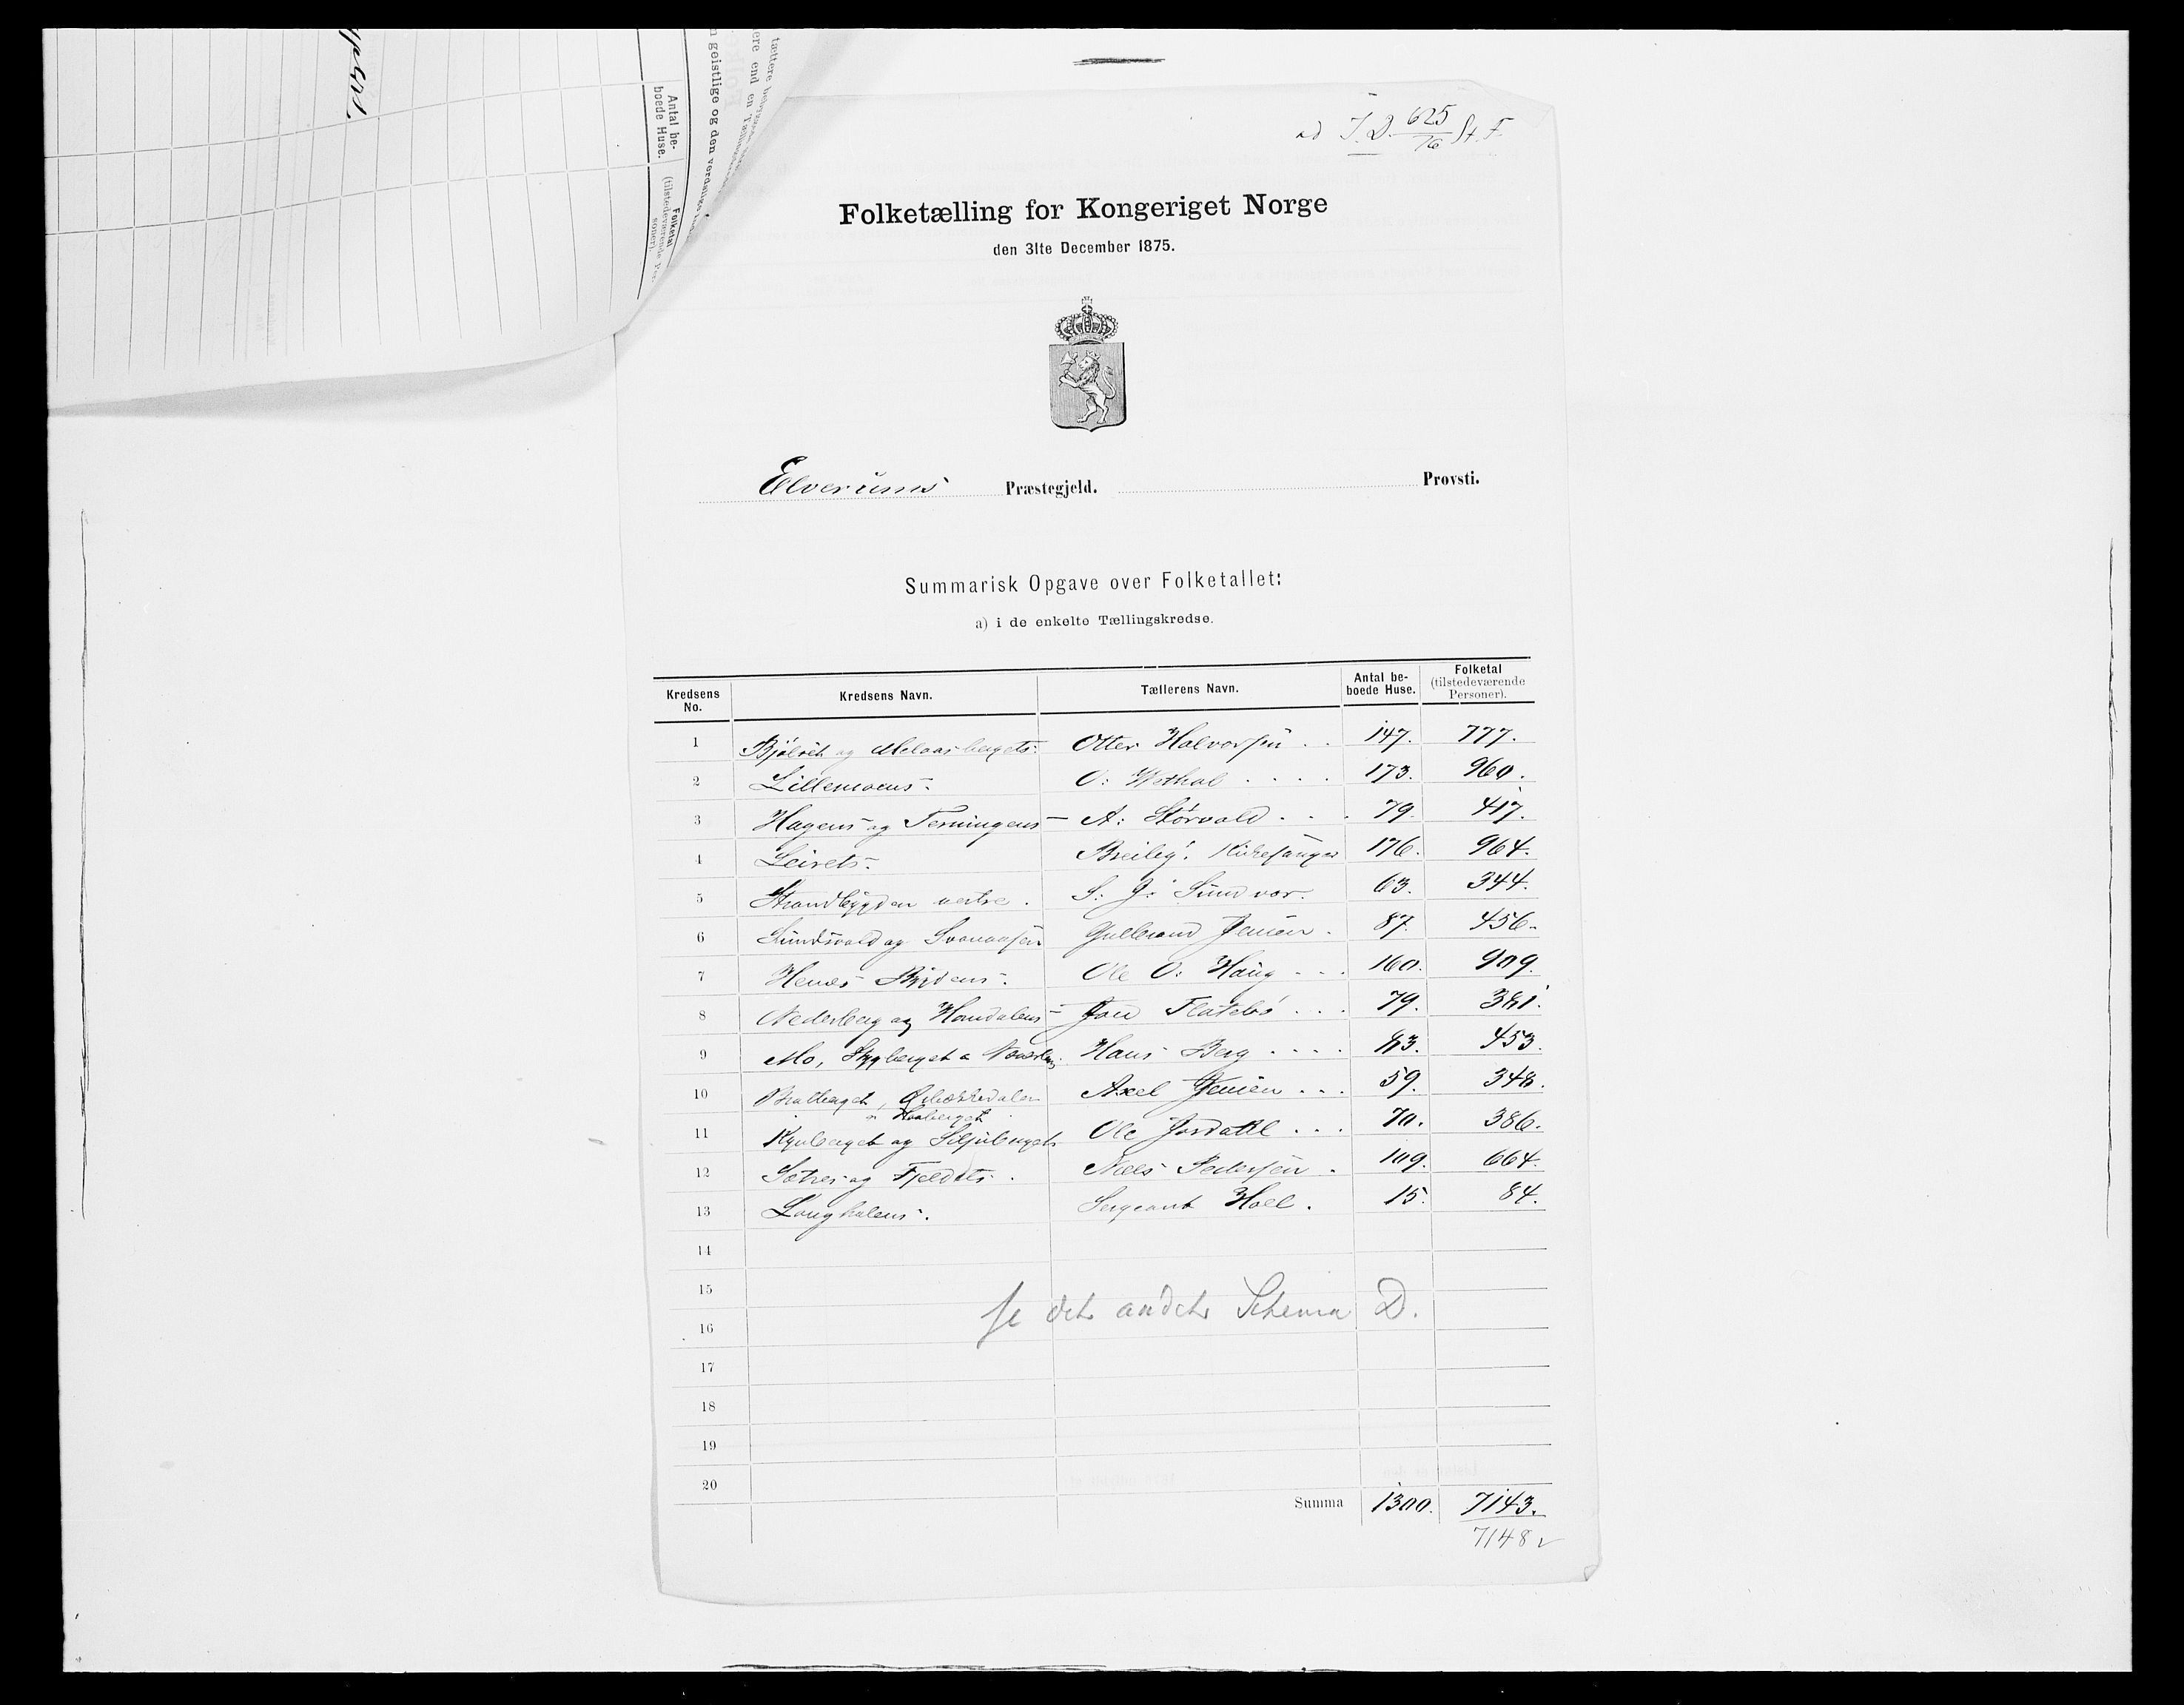 ad J. D. 625/76 St. F.
Folketælling for Kongeriget Norge
den 31te December 1875.
Elverums Præstegjeld. Provsti.
Summarisk Opgave over Folketallet:
a) i de enkelte Tællingskredse.
Kredsens No. Kredsens Navn. Tællerens Navn. Antal beboede Huse. Folketal (tilstedeværende Personer).
1 og Otter Halvorsen . . 147. 777.
2 Lillemoens O: Wethal . . . . 173. 960.
3 Hagens og Terningens A: Störvold . . . 79. 417.
4 Leirets Kirkesanger 176. 964.
5 Strandbygden vestre . S: J: Sundvor. 63. 344.
6 Sundsvold og Svenaasen Gulbrand Jensen . 87. 456.
7 Hernes Bygdens Ole O: Haug . . . 160. 909.
8 Nederberg og Jon Flatebö . . . 79. 381.
9 Mo, Hans Berg . . . . 83. 453.
10 Axel Jensen . . . 59. 348.
11 Kynberget og Siljuberget Ole Jordatll . . . 70. 386.
12 Sætres og Fjeldets . Niels Pedersen . 109. 664.
13 Langholens . Sergeant Holl . 15. 84.
14
15
se det andet Schema D.
16
17
18
19
20
Summa 1300. 7143.
7148
Antal beboede Huse.
Folketal (tilstedeværende Personer).